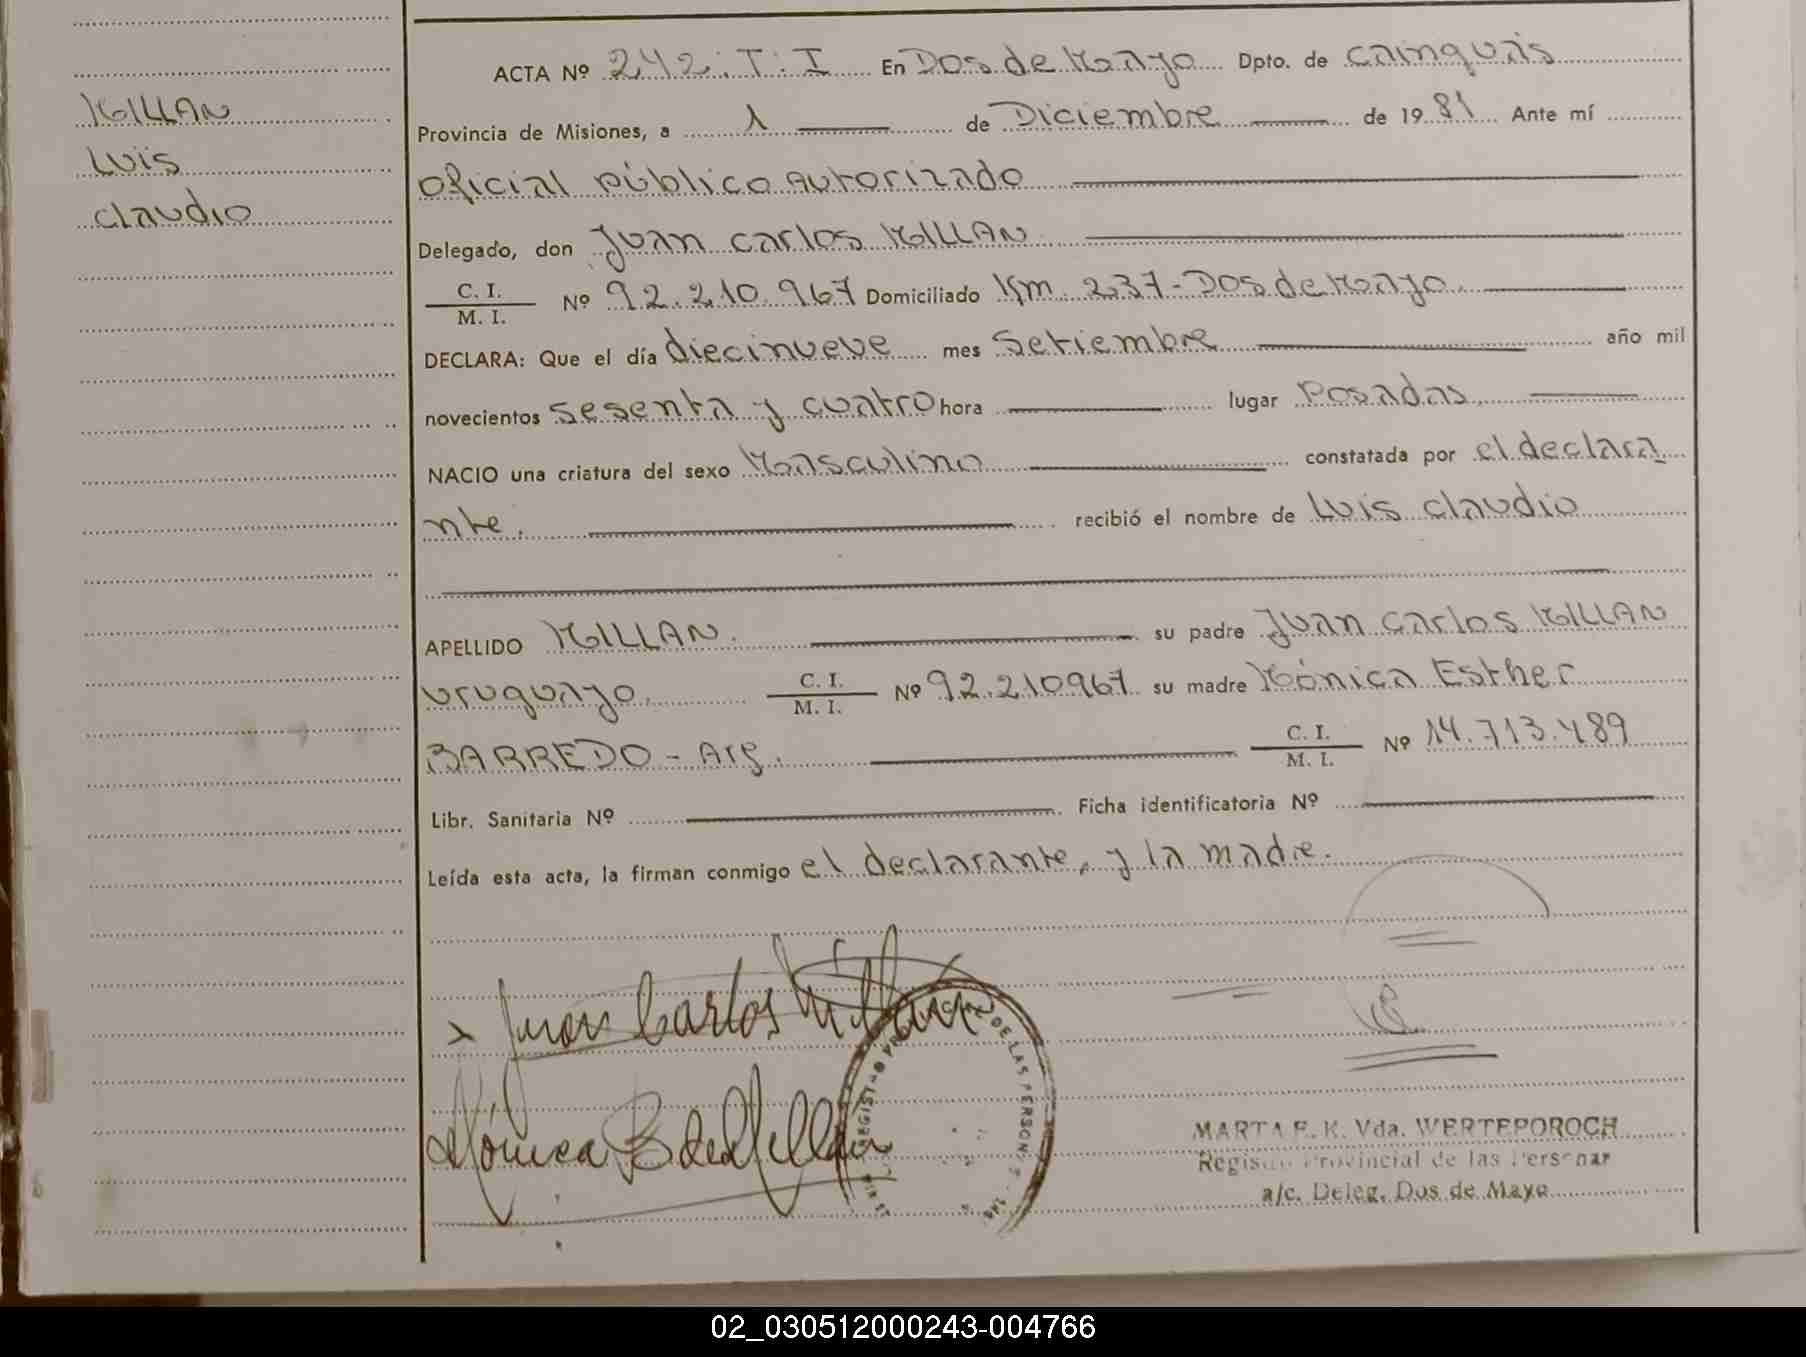 MILLAN
Luis
Claudio
ACTA Nº 242. T: I En Dos de Mayo Dpto. de Cainguás
Provincia de Misiones, a 1 de Diciembre de 1981 Ante mí
oficial público autorizado
Delegado, don Juan Carlos MILLAN
C. I.
M. I.
Nº 92.210.967 Domiciliado Km. 237-Dos de Mayo.
DECLARA: Que el día diecinueve mes Setiembre año mil
novecientos sesenta y cuatro hora lugar Posadas
NACIO una criatura del sexo Masculino constatada por el declara
nte. recibió el nombre de Luis Claudio
APELLIDO MILLAN. su padre Juan Carlos MILLAN
uruguayo. C. I.
M. I.
Nº 92.210967 su madre Mónica Esther
BARREDO - Arg. C. I.
M. I.
Nº 14.713.489
Libr. Sanitaria Nº Ficha identificatoria Nº
Leída esta acta, la firman conmigo el declarante, y la madre.
Juan Carlos Millan
Mónica B de Millán
DE LAS PERSON
MARTA E. K. Vda. WERTEPOROCH
Registro Provincial de las Personas
a/c. Deleg. Dos de Mayo
02_030512000243-004766